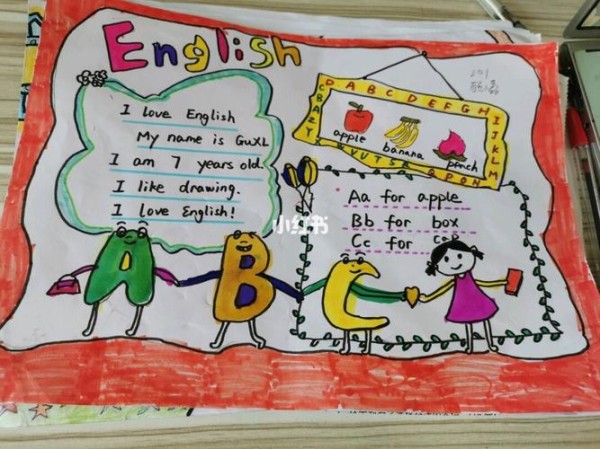 English
I love English
My name is GuXL
I am 7 years old.
I like drawing.
I love English!
A B C D E F G H
I J K L M
apple
banana
peach
Aa for apple
Bb for box
Cc for
小红书
A B C